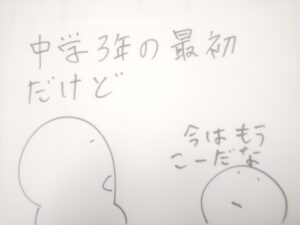 中学3年の最初
だけど
今はもう
こーだな